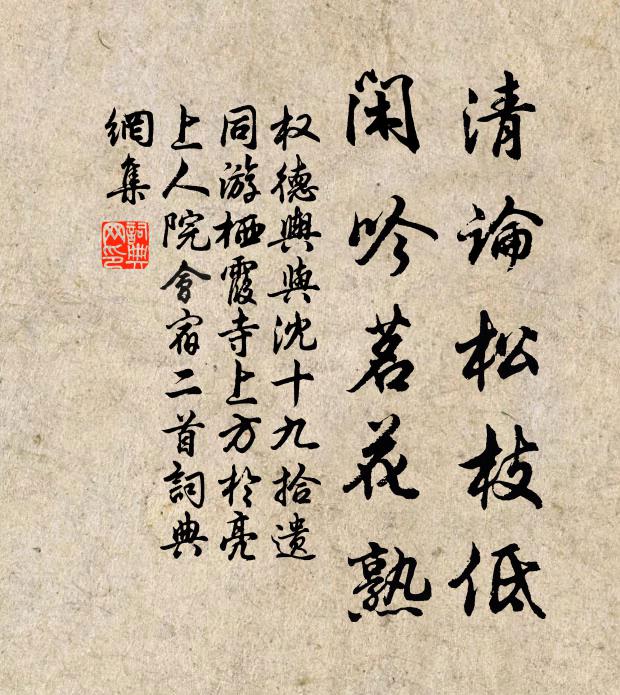 清論松枝低
閑吟茗花熟
权德輿與沈十九拾遗
同游栖霞寺上方於亮
上人院會宿二首詞典
網集
詞典
网印